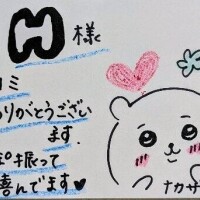 H様
コミ
りがとうござい
ます.
振って
喜んでます♥
ナカサ